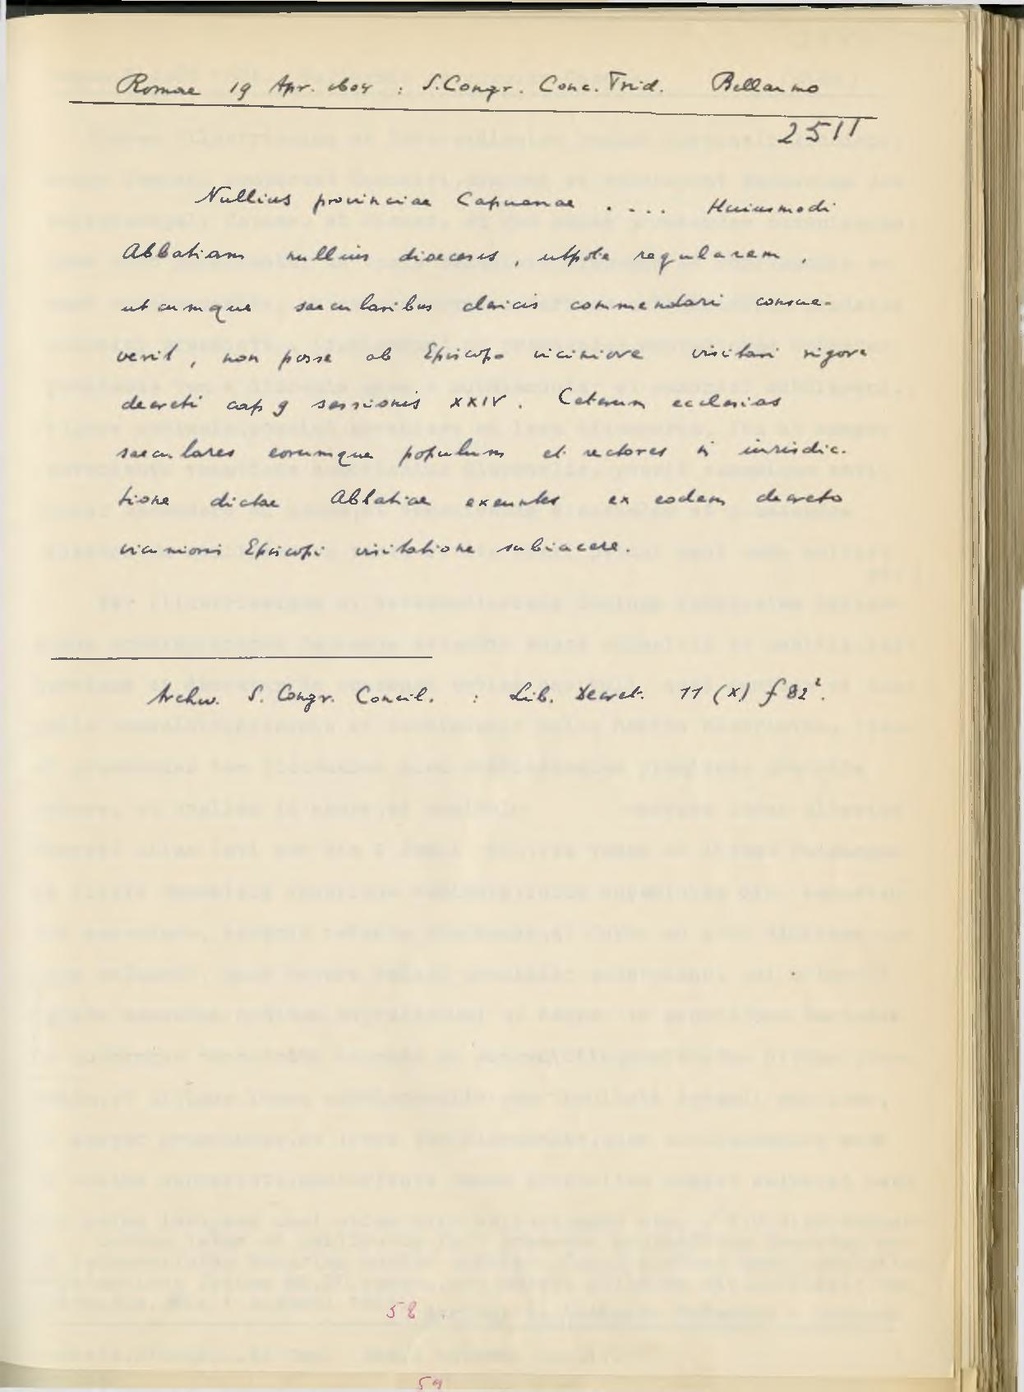 Romae 19 Apr. 1604 : S. Congr. Conc. Trid. Bellarmino
2511
Nullius provinciae Capuanae . . . . Huiusmodi
Abbatiam nullius dioecesis , utpote regularem ,
utcumque saecularibus clericis commendari consue-
verit , non posse ab Episcopo viciniore visitari vigore
decreti cap 9 sessionis XXIV . Ceterum ecclesias
saeculares eorumque populum et rectores in iurisdic-
tione dictae Abbatiae exeuntes ex eodem decreto
vicinioris Episcopi visitatione subiacere .
Archiv. S. Congr. Concil. : Lib. Decret. 11 (X) f 82
58
59